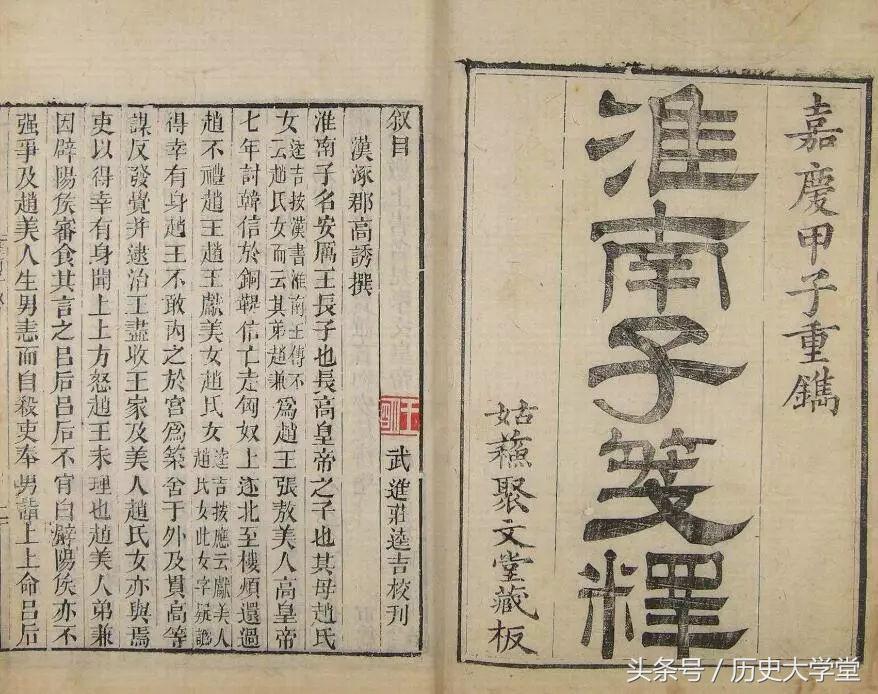 嘉慶甲子重鐫
淮南子箋釋
姑蘇聚文堂藏板
叙目
漢涿郡高誘撰
武進莊逵吉校刊
淮南子名安厲王長子也長高皇帝之子也其母趙氏
女逵吉按漢書淮南王傳不云趙氏女而云其弟趙兼為趙王張敖美人高皇帝
七年討韓信於銅鞮信亡走匈奴上遂北至樓煩還過
趙不禮趙王趙王獻美女趙氏女逵吉按應云獻美人趙氏女此女字疑譌
得幸有身趙王不敢內之於宮為築舍于外及貫高等
謀反發覺并逮治王盡收王家及美人趙氏女亦與焉
吏以得幸有身聞上上方怒趙王未理也趙美人弟兼
因辟陽侯審食其言之呂后呂后不肎白辟陽侯亦不
强爭及趙美人生男恚而自殺吏奉男詣上上命呂后
头条号/历史大学堂